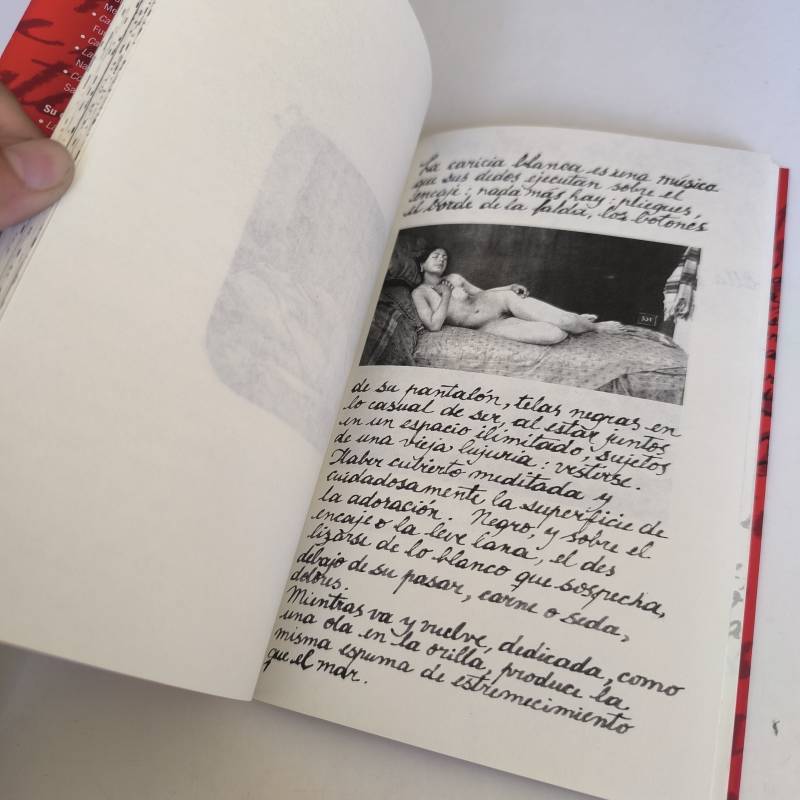 Me
• Ca
Fu
• Ca
• La
Na
• Co
Sa
Su
• L
La caricia blanca es una música
que sus dedos ejecutan sobre el
encaje; nada más hay: pliegues,
el borde de la falda, los botones
de su pantalón, telas negras en
lo casual de ser, al estar juntos
en un espacio ilimitado, sujetos
de una vieja lujuria: vestirse.
Haber cubierto meditada y
cuidadosamente la superficie de
la adoración. Negro, y sobre el
encaje o la leve lana, el des
lizarse de lo blanco que sospecha,
debajo de su pasar, carne o seda,
dolores.
Mientras va y vuelve, dedicada, como
una ola en la orilla, produce la
misma espuma de estremecimiento
que el mar.